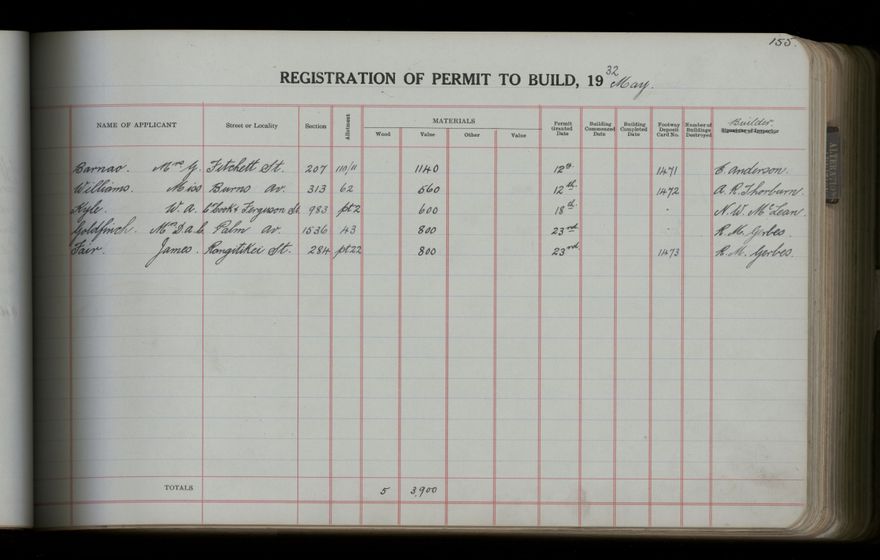 155.
REGISTRATION OF PERMIT TO BUILD, 1932 May.
NAME OF APPLICANT Street or Locality Section Allotment MATERIALS Wood Value Other Value Permit Granted Date Building Commenced Date Building Completed Date Footway Deposit Card No. Number of Buildings Destroyed Builder. Signature of Inspector
Barnao. Mrs G. Fitchett St. 207 110/11 1140 12th. 1471 E. Anderson.
Williams. Miss Burns Av. 313 62 560 12th. 1472 A. R. Thorburn.
Kyle. W. A. Cr Cook & Ferguson St. 983 pt 2 600 18th. N. W. McLean.
Goldfinch. Mrs D. a. C. Palm Av. 1536 43 800 23rd R. M. Gerbes.
Fair. James. Rangitikei St. 284 pt 22 800 23rd 1473 R. M. Gerbes.
TOTALS 5 3,900
ALTERATION